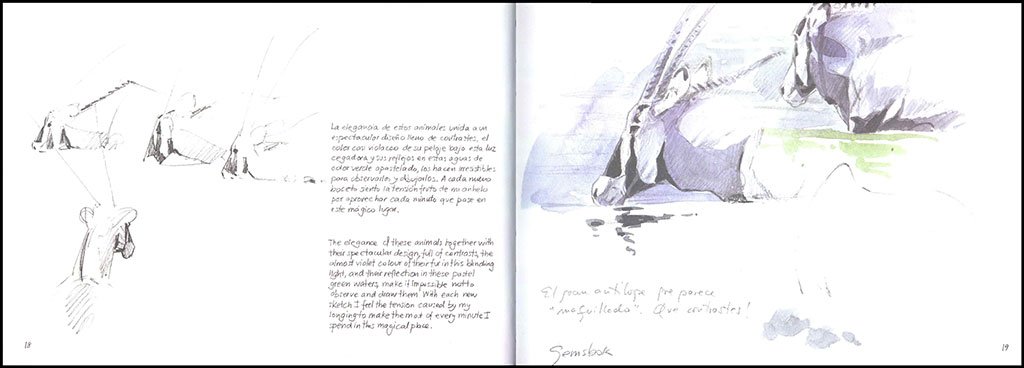 La elegancia de estos animales unida a un
espectacular diseño lleno de contrastes, el
color casi violaceo de su pelaje bajo esta luz
cegadora y sus reflejos en estas aguas de
color verde apastelado, los hacen irresistibles
para observarlos y dibujarlos. A cada nuevo
boceto siento la tensión fruto de mi anhelo
por aprovechar cada minuto que pase en
este mágico lugar.
The elegance of these animals together with
their spectacular design, full of contrasts, the
almost violet colour of their fur in this blinding
light, and their reflection in these pastel
green waters, make it impossible not to
observe and draw them. With each new
sketch I feel the tension caused by my
longing to make the most of every minute I
spend in this magical place.
18
El gran antílope me parece
"maquillado". Que contrastes!
Gemsbok
19